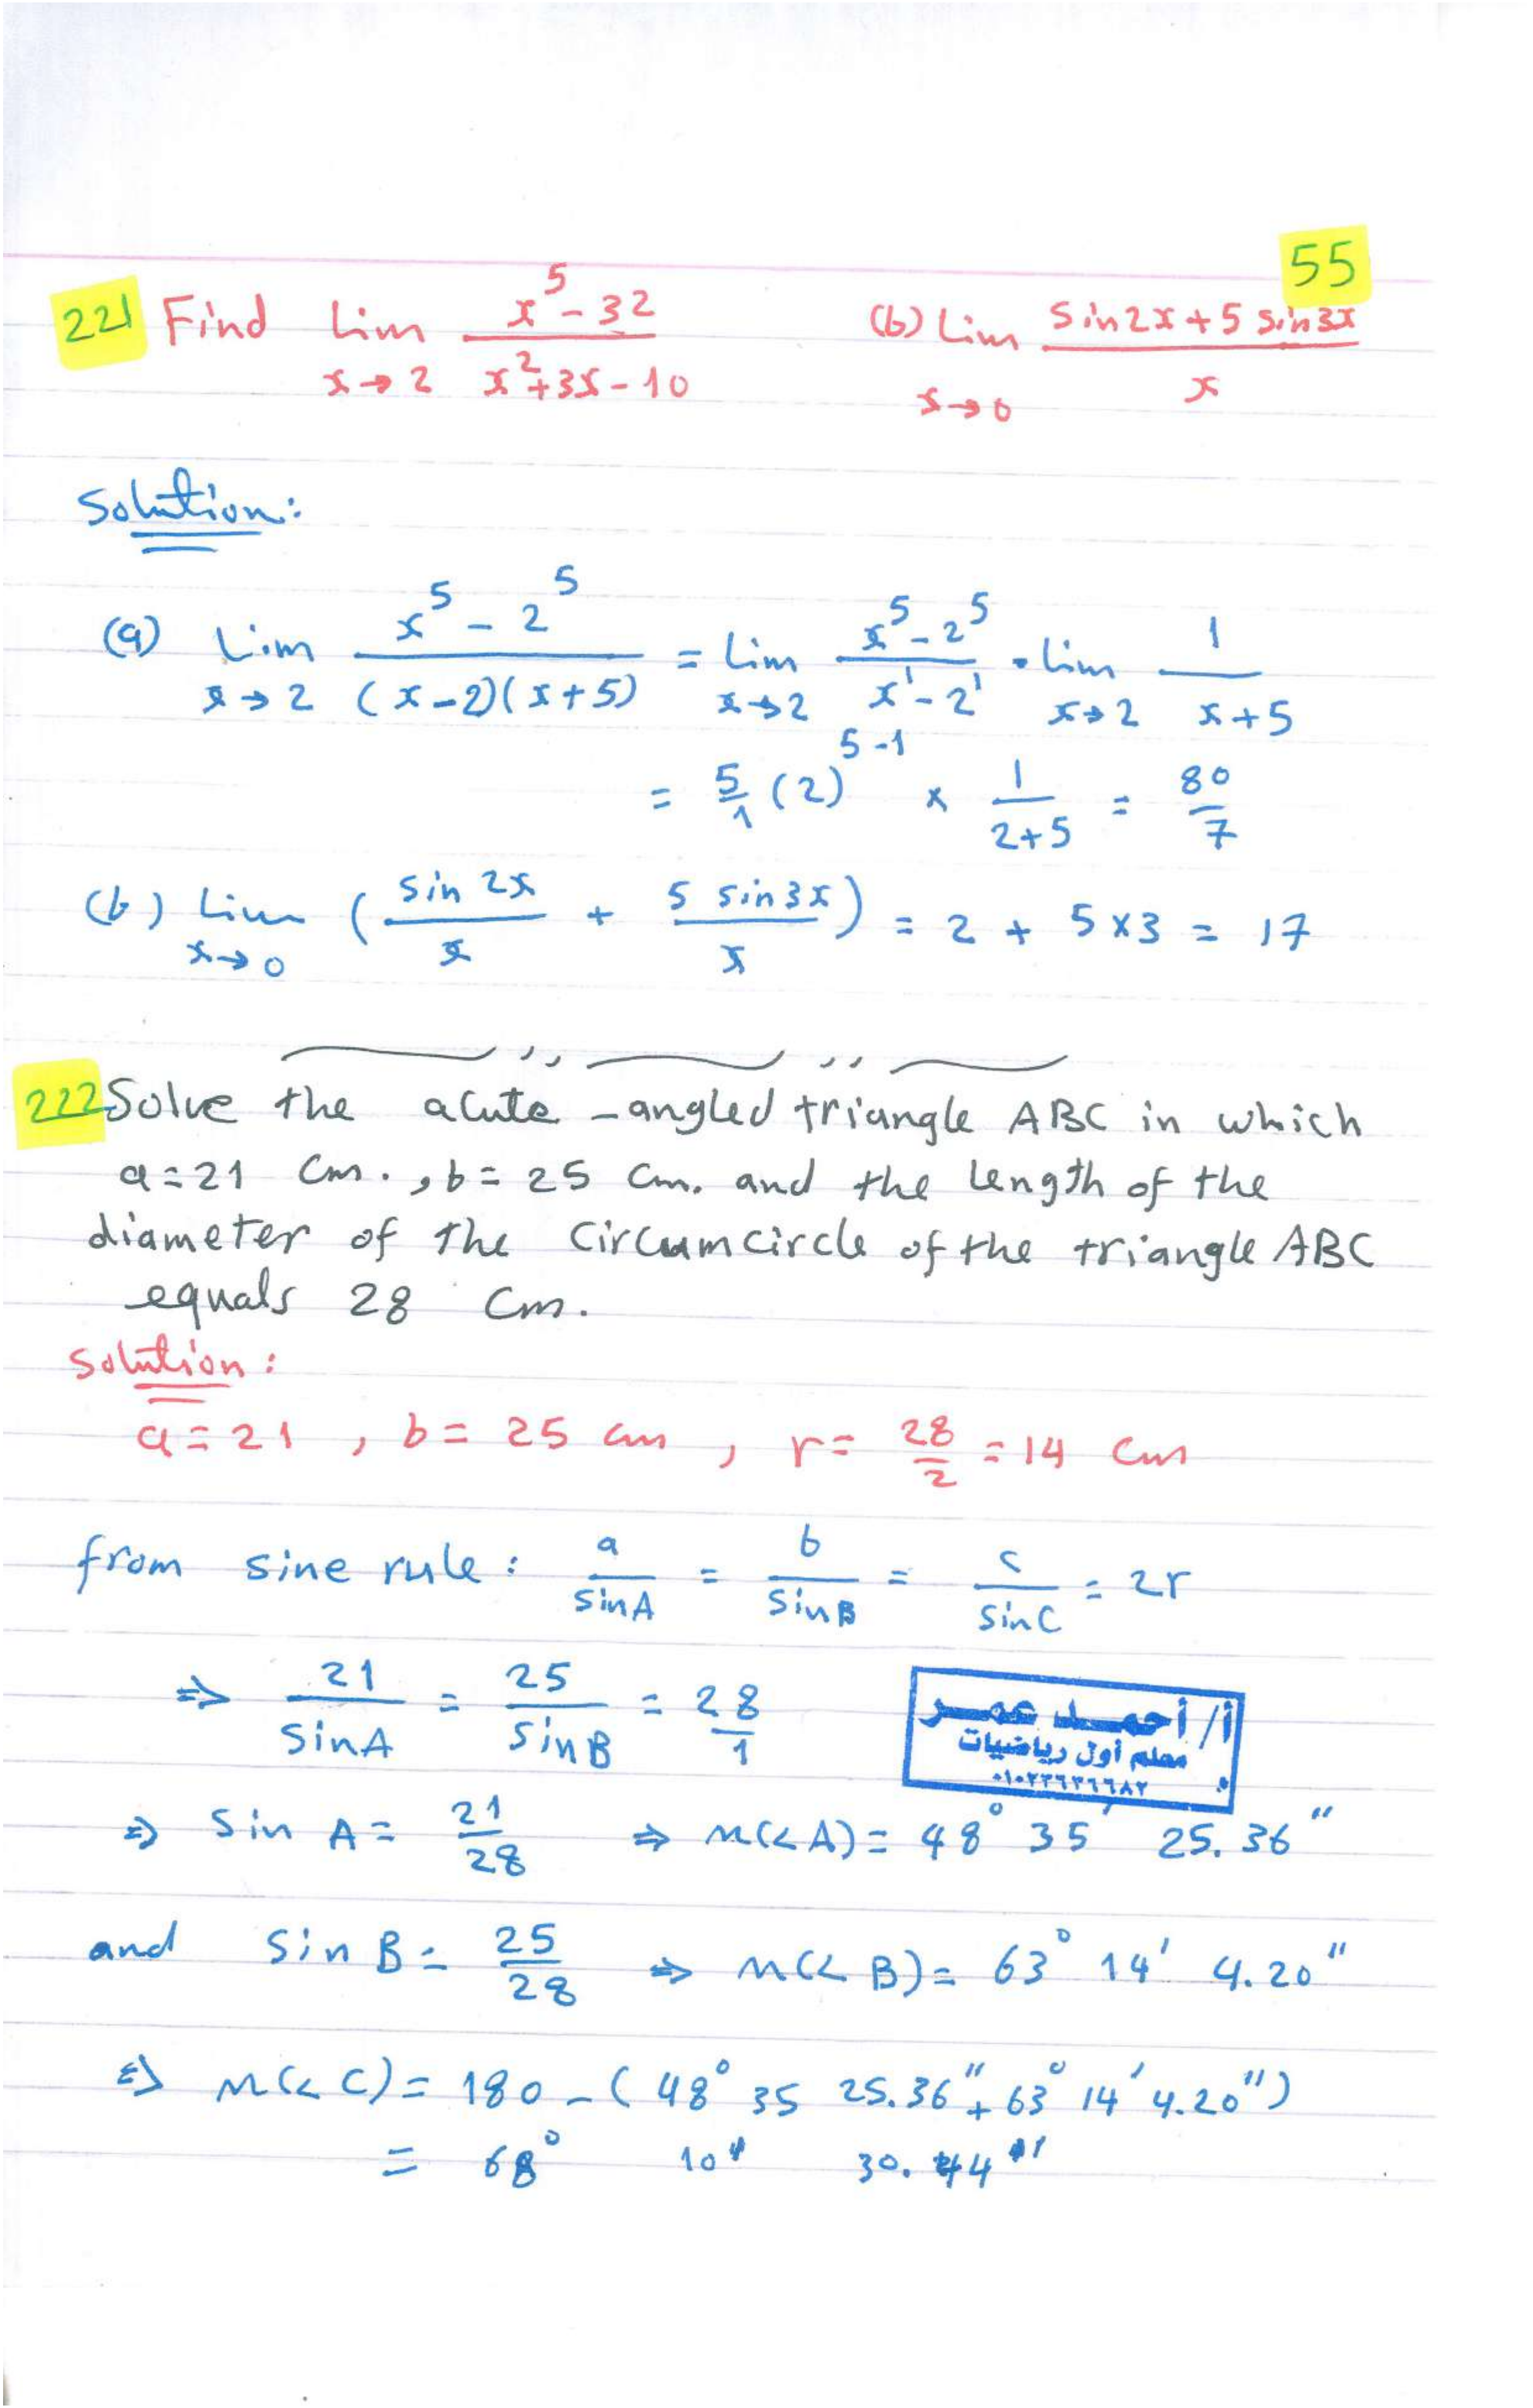 55
221 Find lim x→2 (x^5 - 32)/(x^2+3x-10) (b) Lim x→0 (Sin2x+5 sin3x)/x
Solution:
(a) Lim x→2 (x^5 - 2^5)/((x-2)(x+5)) = Lim x→2 (x^5-2^5)/(x^1-2^1) . Lim x→2 1/(x+5)
= 5/1 (2)^5-1 × 1/(2+5) = 80/7
(b) Lim x→0 (sin 2x/x + 5 sin3x/x) = 2 + 5×3 = 17
222 Solve the acute -angled triangle ABC in which
a=21 Cm., b= 25 Cm. and the length of the
diameter of the Circumcircle of the triangle ABC
equals 28 Cm.
Solution:
a=21 , b= 25 cm , r= 28/2 = 14 Cm
from sine rule: a/sinA = b/SinB = c/SinC = 2r
⇒ 21/SinA = 25/SinB = 28/1
أ/ أحمد عمر
معلم أول رياضيات
٠١٠٢٢٦٣٦٦٨٢
⇒ Sin A = 21/28 ⇒ m(< A) = 48° 35' 25.36"
and Sin B = 25/28 ⇒ m(< B) = 63° 14' 4.20"
⇒ m(< C) = 180 - (48° 35 25.36" + 63° 14' 4.20")
= 68° 10' 30.44"